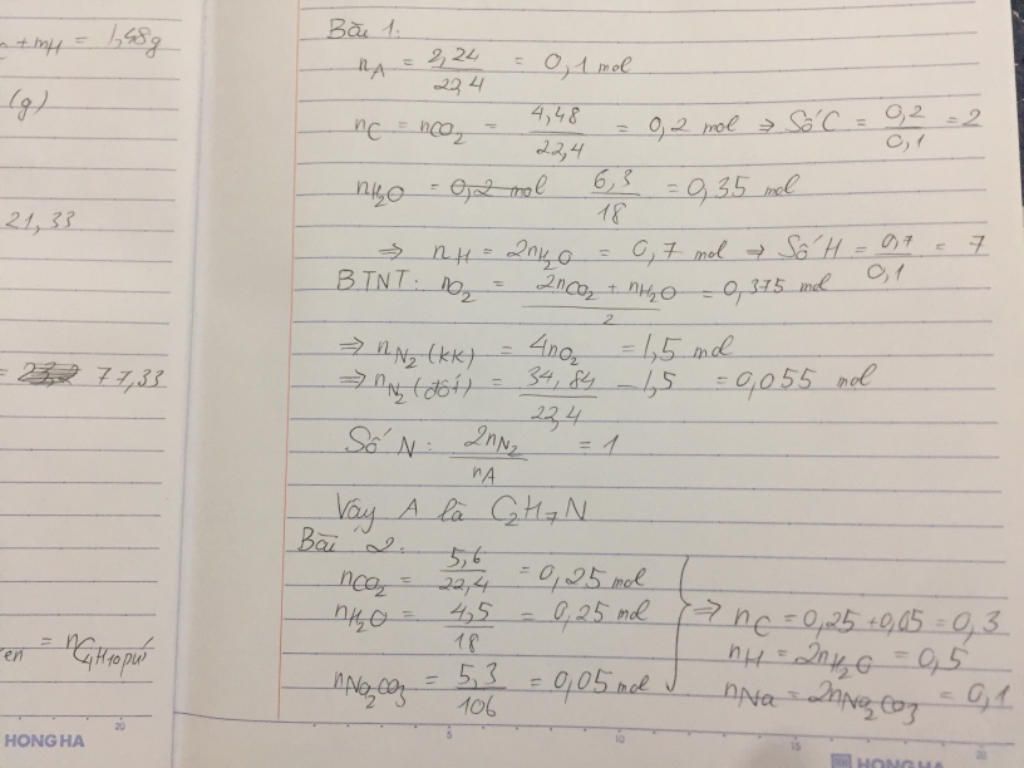 + mH = 1,48g
(g)
21,33
= 77,33
= nC4H10pứ
HONG HA
Bài 1:
nA = 2,24/22,4 = 0,1 mol
nC = nCO2 = 4,48/22,4 = 0,2 mol ⇒ Số C = 0,2/0,1 = 2
nH2O = 0,2 mol 6,3/18 = 0,35 mol
⇒ nH = 2nH2O = 0,7 mol ⇒ Số H = 0,7/0,1 = 7
BTNT: nO2 = (2nCO2 + nH2O)/2 = 0,375 mol
⇒ nN2(kk) = 4nO2 = 1,5 mol
⇒ nN2(đốt) = 34,84/22,4 - 1,5 = 0,055 mol
Số N: 2nN2/nA = 1
Vậy A là C2H7N
Bài 2:
nCO2 = 5,6/22,4 = 0,25 mol
nH2O = 4,5/18 = 0,25 mol
nNa2CO3 = 5,3/106 = 0,05 mol
⇒ nC = 0,25 + 0,05 = 0,3
nH = 2nH2O = 0,5
nNa = 2nNa2CO3 = 0,1
5 10 15 20
HONG HA